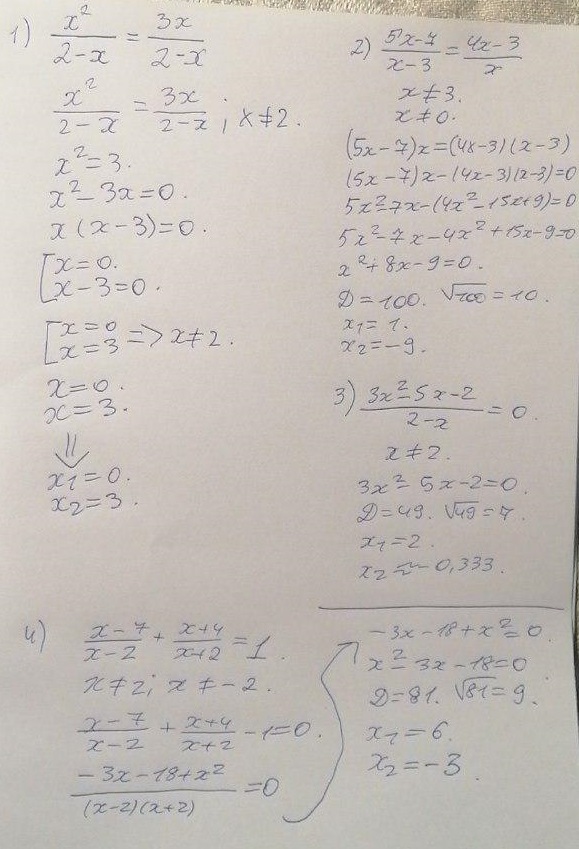 1) x²/(2-x) = 3x/(2-x)
x²/(2-x) = 3x/(2-x) ; x≠2.
x²=3.
x²-3x=0.
x(x-3)=0.
[x=0.
x-3=0.
[x=0
x=3 => x≠2.
x=0.
x=3.
⇓
x₁=0.
x₂=3.
2) (5x-7)/(x-3) = (4x-3)/x
x≠3.
x≠0.
(5x-7)x=(4x-3)(x-3)
(5x-7)x-(4x-3)(x-3)=0
5x²-7x-(4x²-15x+9)=0
5x²-7x-4x²+15x-9=0
x²+8x-9=0.
D=100. √100=10.
x₁=1.
x₂=-9.
3) (3x²-5x-2)/(2-x) = 0.
x≠2.
3x²-5x-2=0.
D=49. √49=7.
x₁=2.
x₂≈-0,333.
4) (x-7)/(x-2) + (x+4)/(x+2) = 1.
x≠2; x≠-2.
(x-7)/(x-2) + (x+4)/(x+2) - 1=0.
(-3x-18+x²)/((x-2)(x+2)) = 0
-3x-18+x²=0.
x²-3x-18=0
D=81. √81=9.
x₁=6.
x₂=-3.